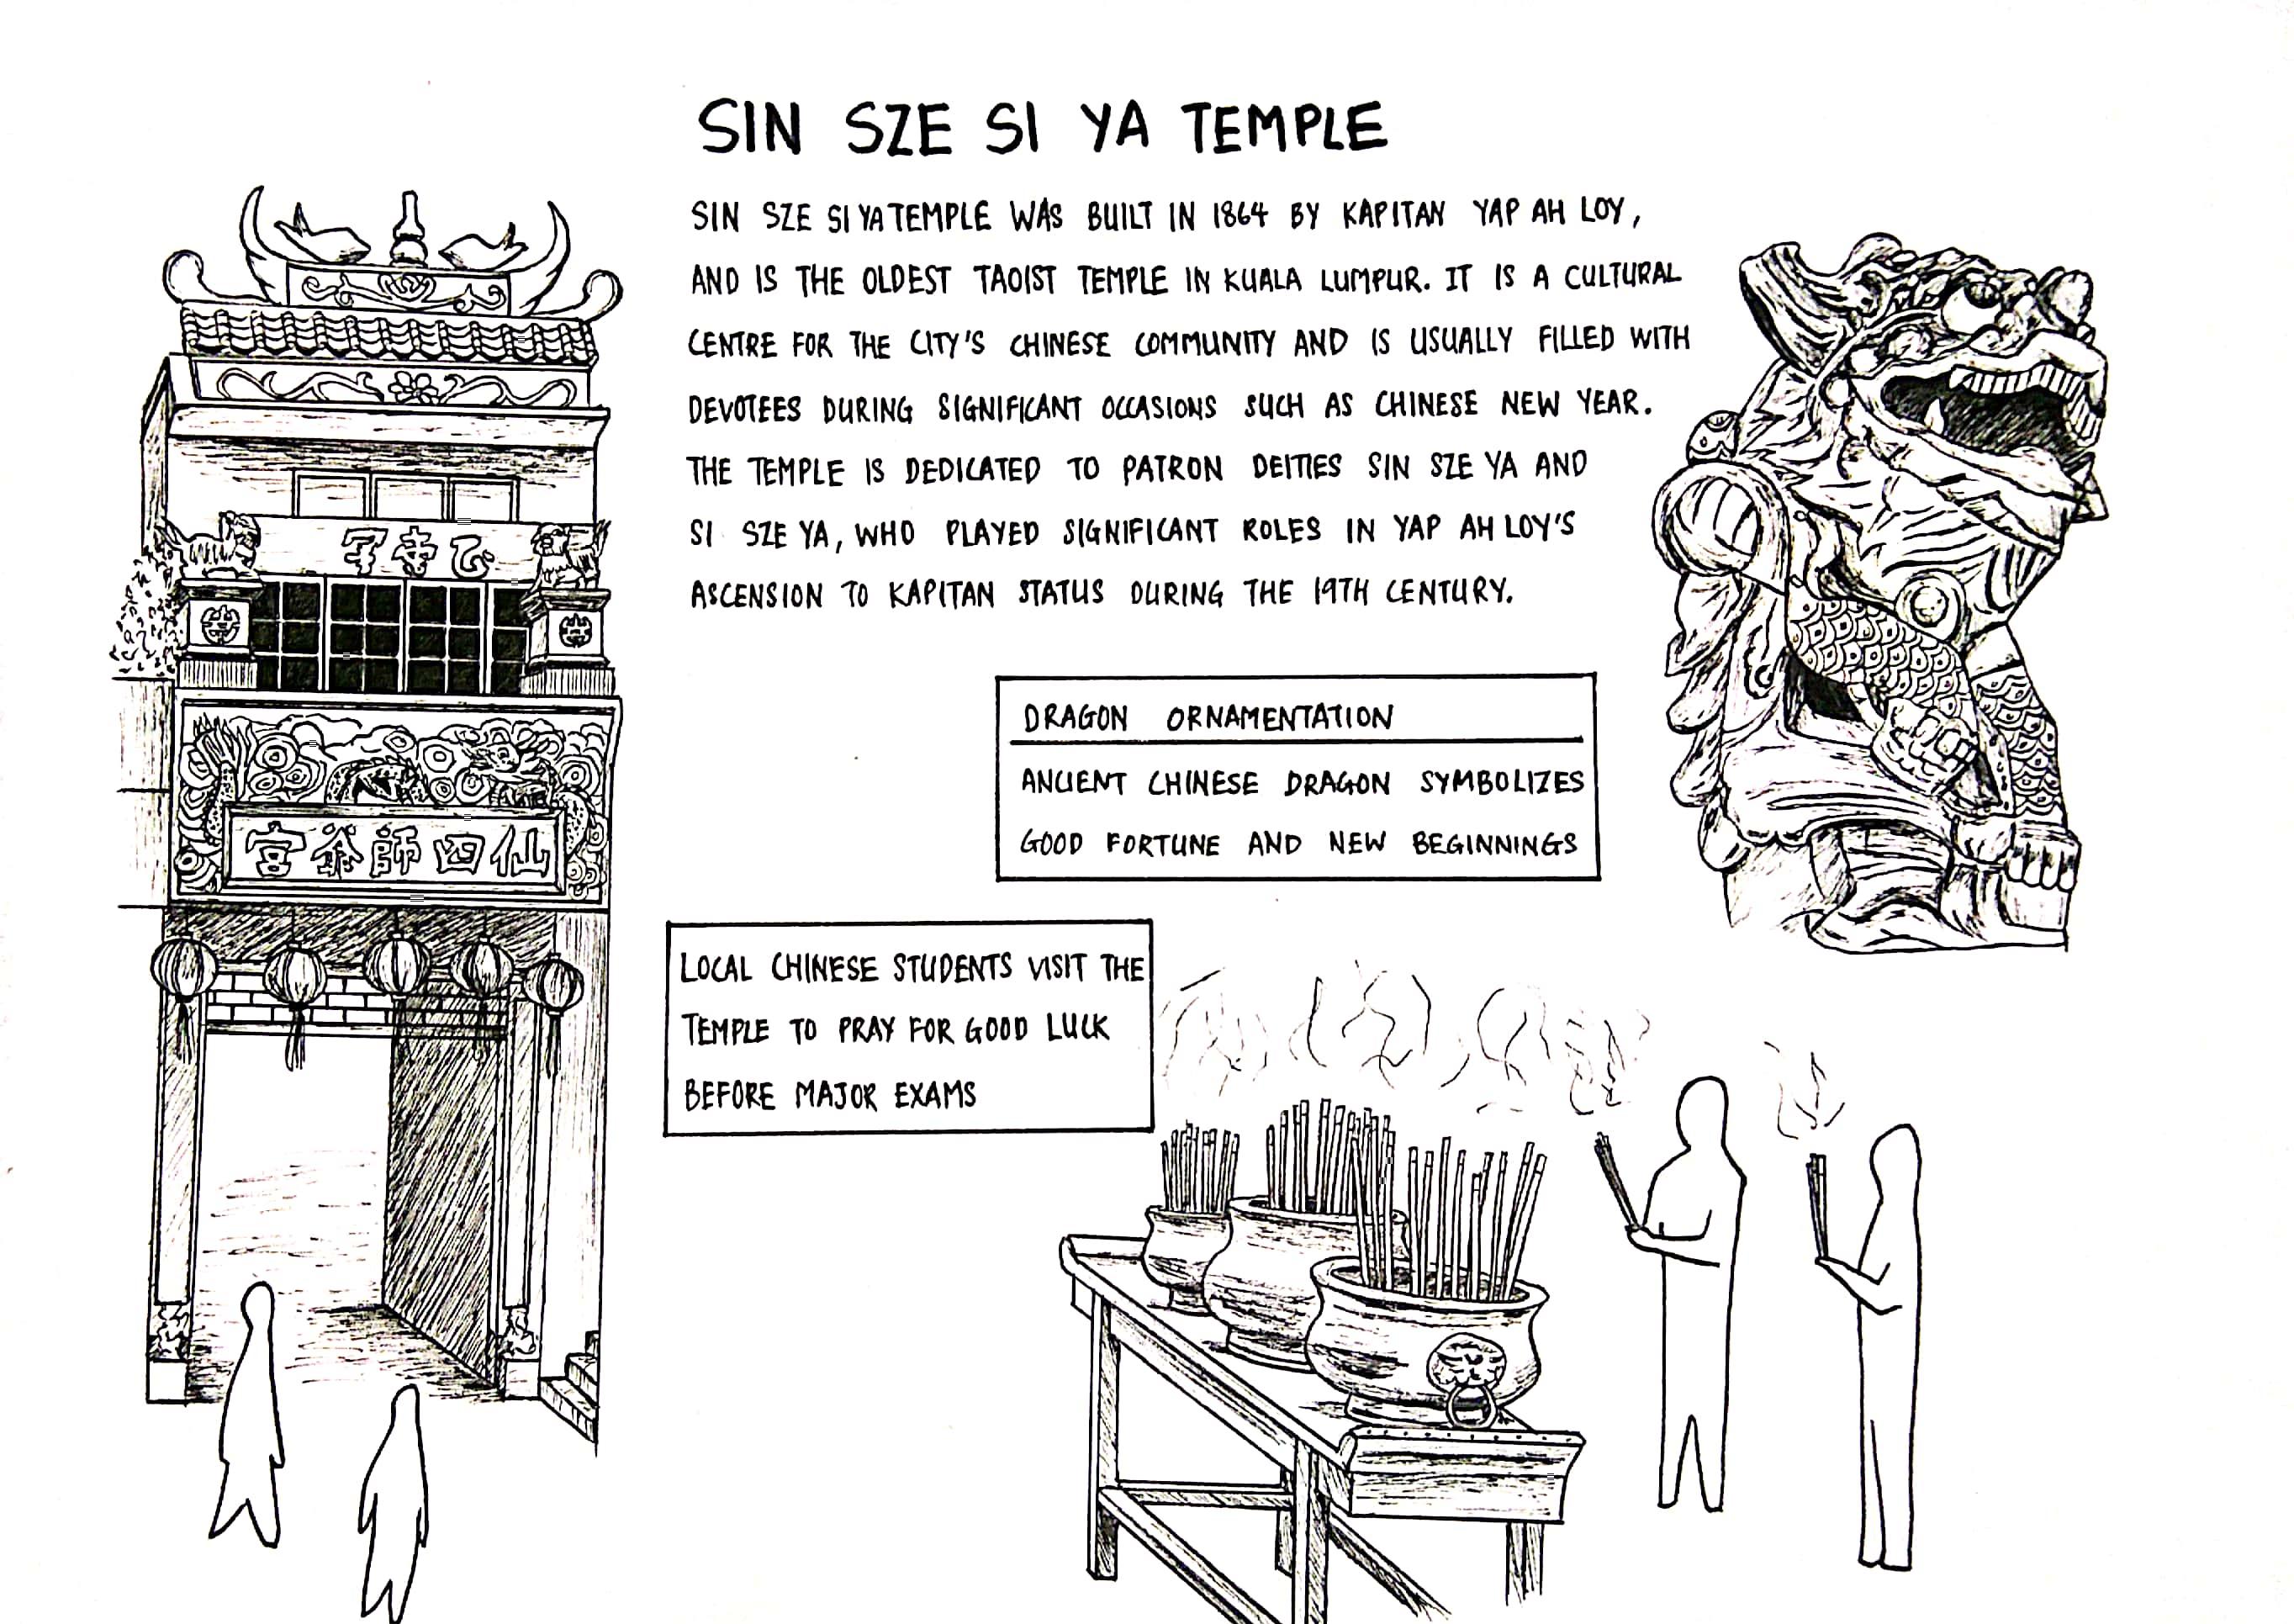 SIN SZE SI YA TEMPLE
SIN SZE SI YA TEMPLE WAS BUILT IN 1864 BY KAPITAN YAP AH LOY,
AND IS THE OLDEST TAOIST TEMPLE IN KUALA LUMPUR. IT IS A CULTURAL
CENTRE FOR THE CITY'S CHINESE COMMUNITY AND IS USUALLY FILLED WITH
DEVOTEES DURING SIGNIFICANT OCCASIONS SUCH AS CHINESE NEW YEAR.
THE TEMPLE IS DEDICATED TO PATRON DEITIES SIN SZE YA AND
SI SZE YA, WHO PLAYED SIGNIFICANT ROLES IN YAP AH LOY'S
ASCENSION TO KAPITAN STATUS DURING THE 19TH CENTURY.
DRAGON ORNAMENTATION
ANCIENT CHINESE DRAGON SYMBOLIZES
GOOD FORTUNE AND NEW BEGINNINGS
仙四師爺宮
LOCAL CHINESE STUDENTS VISIT THE
TEMPLE TO PRAY FOR GOOD LUCK
BEFORE MAJOR EXAMS